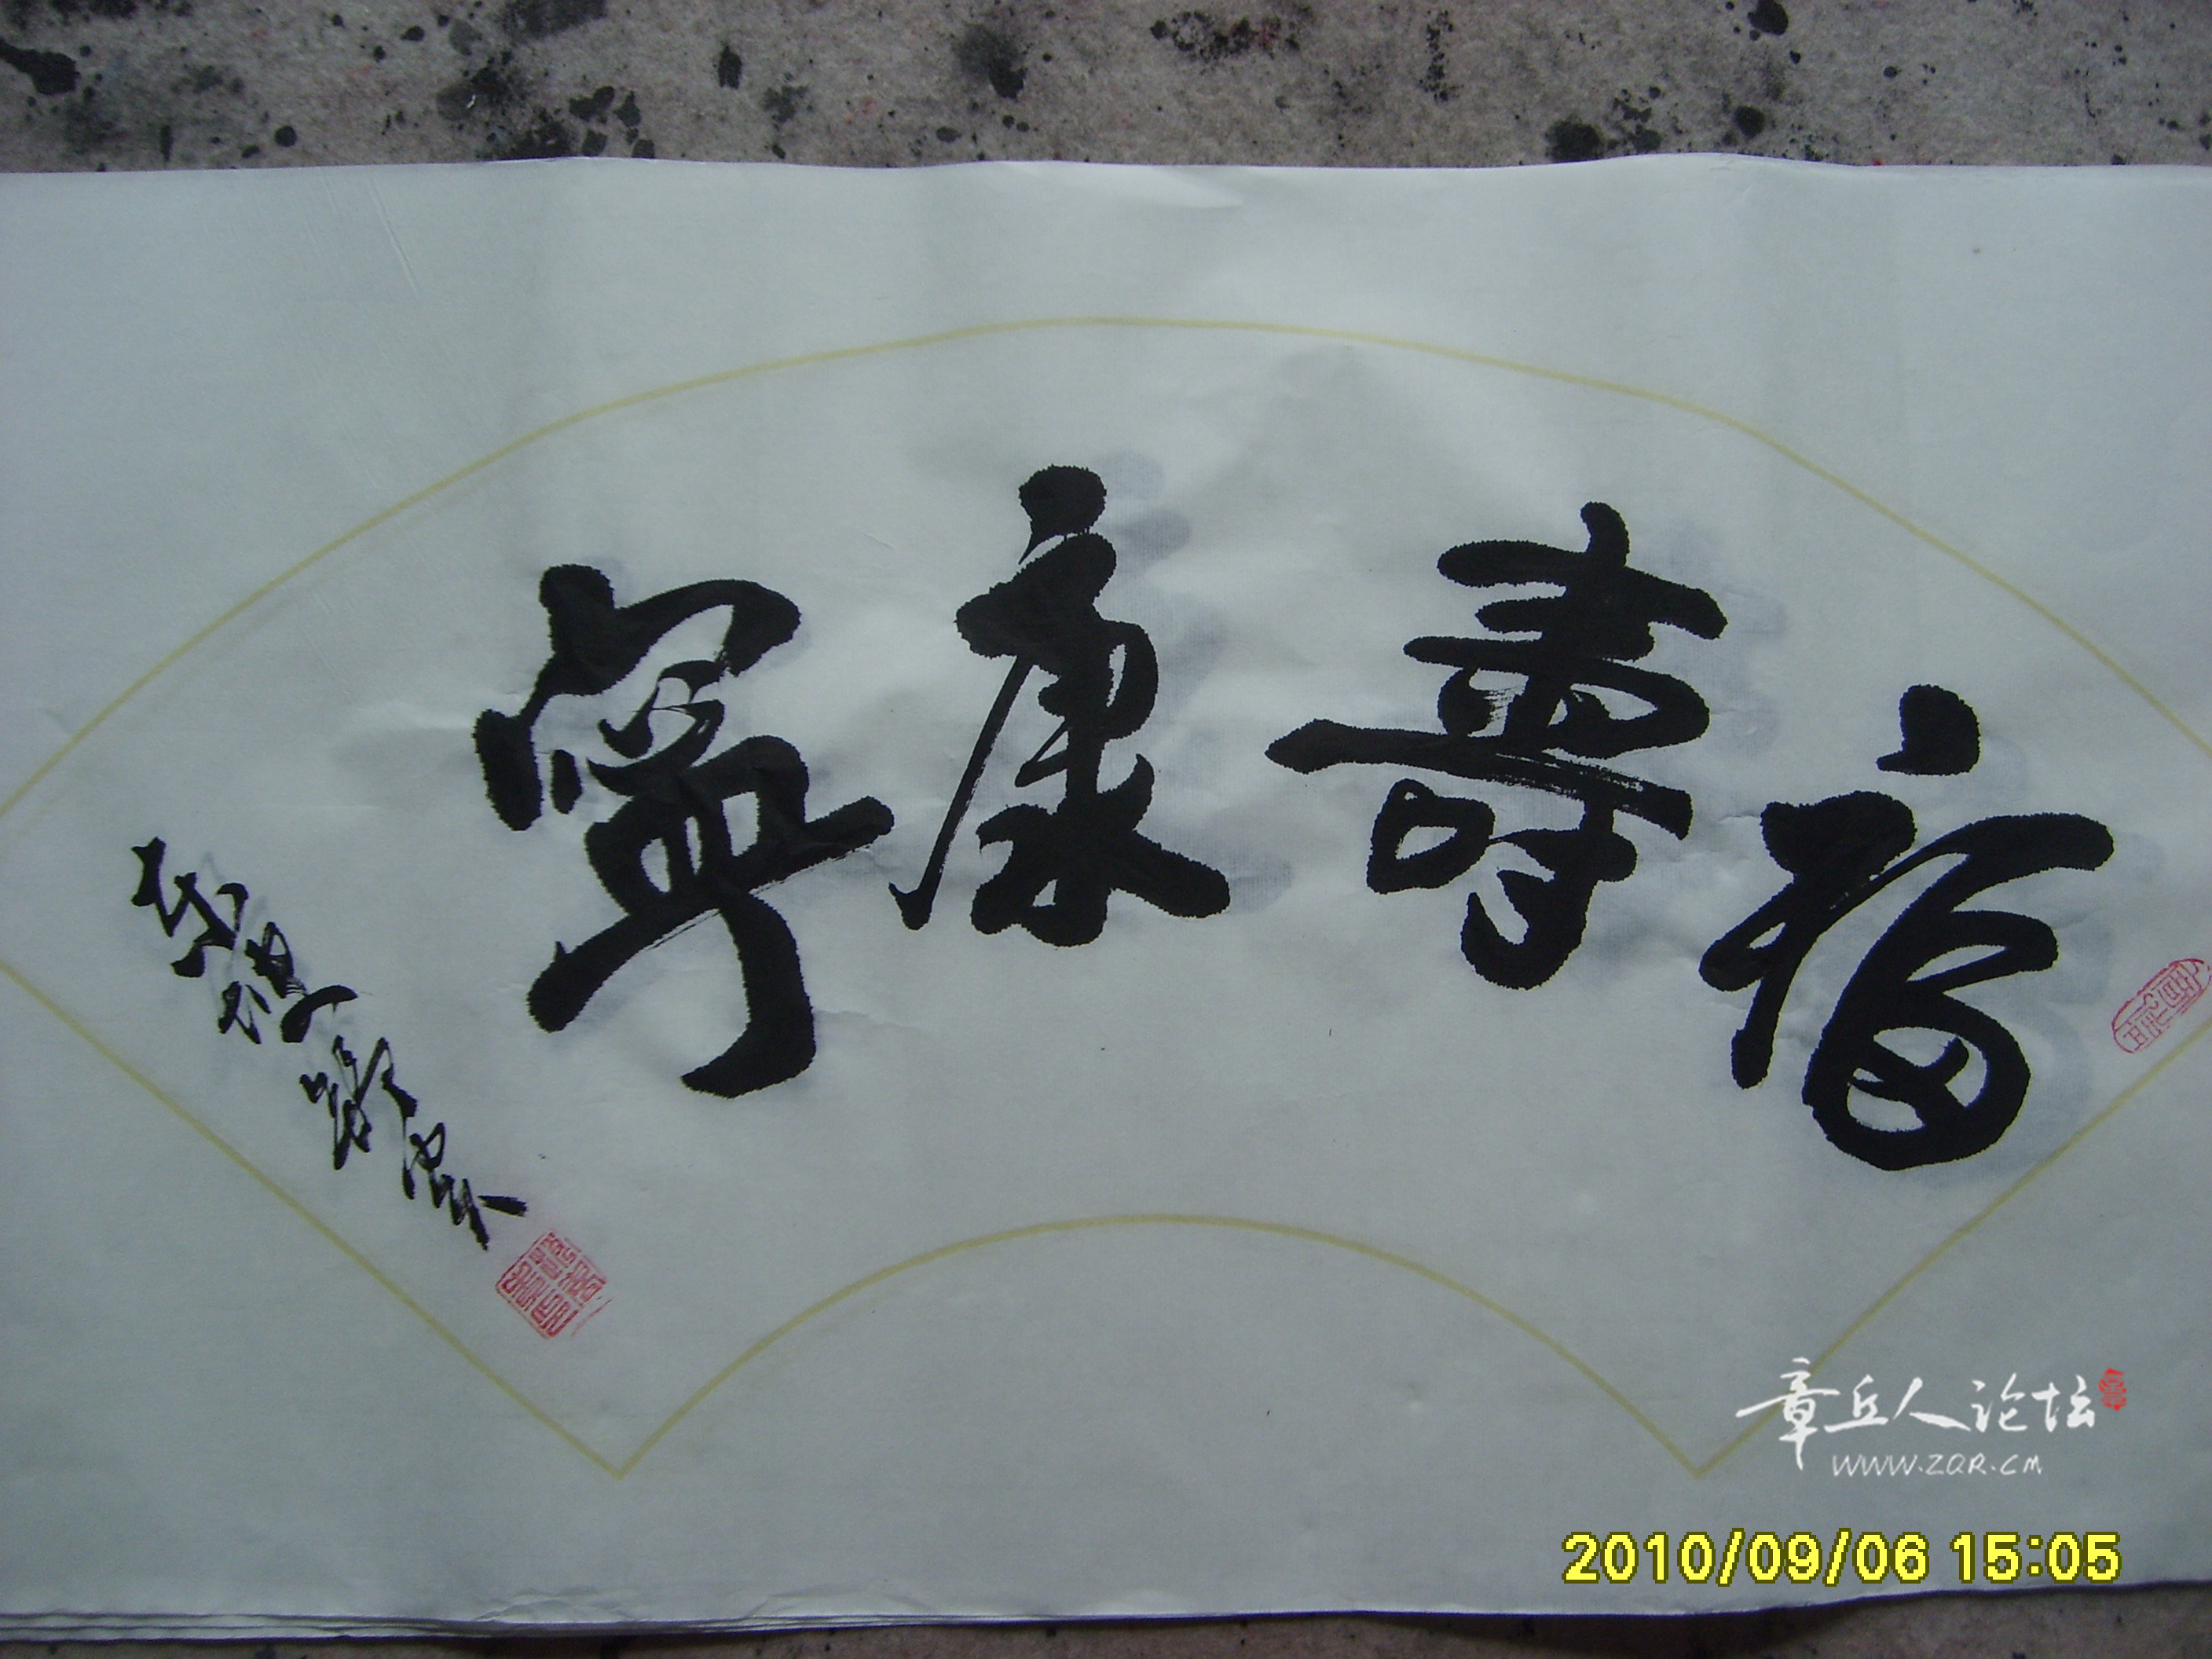 福壽康寧
章丘人论坛
WWW.ZQR.CM
2010/09/06 15:05